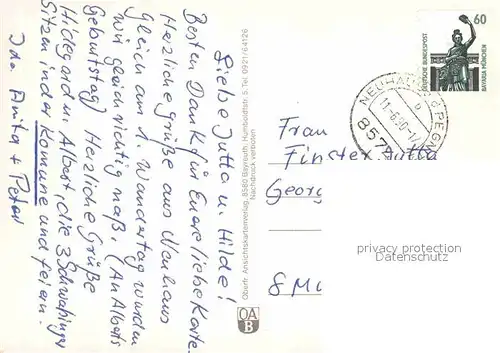 Liebe Jutta u. Hilde!
Besten Dank für Eure liebe Karte.
Herzliche Grüße aus Neuhaus
Gleich am 1. Wandertag wurden
wir gleich richtig naß. (An Alberts
Geburtstag) Herzliche Grüße
Hildegard u. Albert, die 3 Schwabinger
sitzen in der Kommune und feiern.
Anita + Peter
Oberfr. Ansichtskartenverlag, 8580 Bayreuth, Humboldtstr. 5, Tel. 0921/64126
Nachdruck verboten
OA
B
60
DEUTSCHE BUNDESPOST
BAVARIA MÜNCHEN
857
Frau
Jutta
Georg
8 Mü
privacy protection
Datenschutz